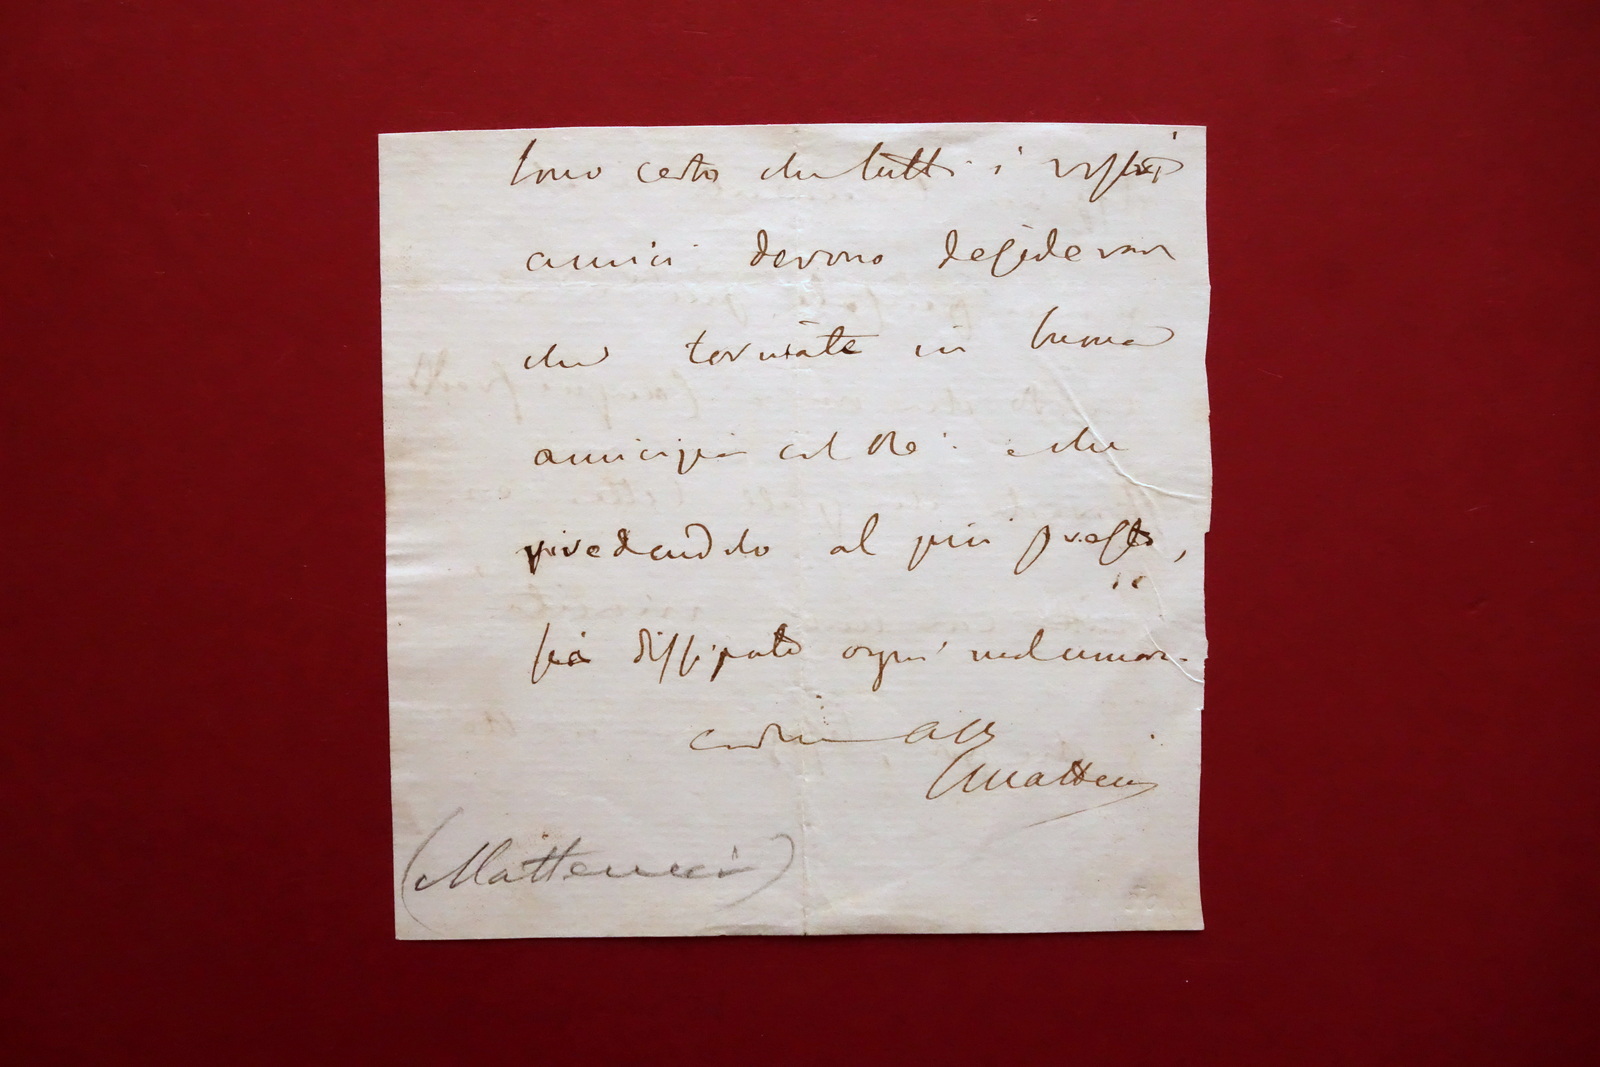 sono certo che tutti i vostri
amici devono desiderar
che torniate in buona
amicizia col Re: e che
rivedendolo al più presto,
sia dissipato ogni malumore.
Matteucci
(Matteucci)